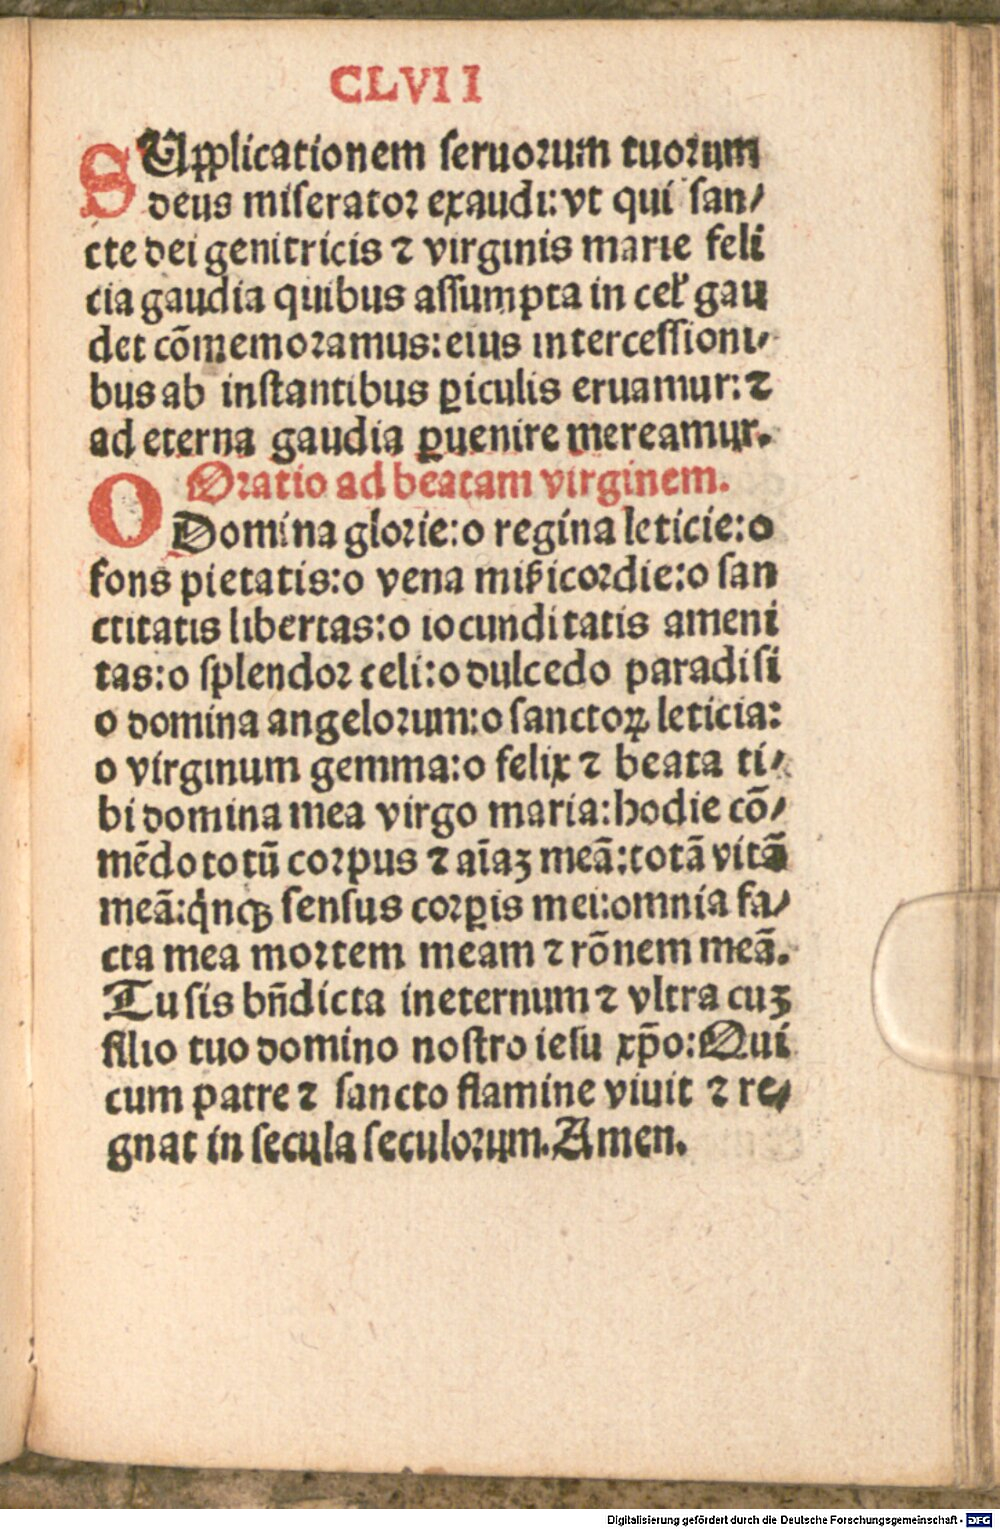 CLVII
SUpplicationem seruorum tuorum
deus miserator exaudi: vt qui san/
cte dei genitricis ⁊ virginis marie feli
cia gaudia quibus assumpta in cel̕ gau
det cōmemoramus: eius intercessioni/
bus ab instantibus ꝑiculis eruamur: ⁊
ad eterna gaudia ꝑuenire mereamur.
Oratio ad beatam virginem.
O Domina glorie: o regina leticie: o
fons pietatis: o vena mis̄icordie: o san
ctitatis libertas: o iocunditatis ameni
tas: o splendor celi: o dulcedo paradisi
o domina angelorum: o sanctoꝝ leticia:
o virginum gemma: o felix ⁊ beata ti/
bi domina mea virgo maria: hodie cō/
mēdo totū corpus ⁊ aīaꝫ meā: totā vitā
meā: qͥnqꝫ sensus corꝑis mei: omnia fa/
cta mea mortem meam ⁊ rōnem meā.
Tu sis bn̄dicta ineternum ⁊ vltra cuꝫ
filio tuo domino nostro iesu xp̄o: Qui
cum patre ⁊ sancto flamine viuit ⁊ re/
gnat in secula seculorum. Amen.
Digitalisierung gefördert durch die Deutsche Forschungsgemeinschaft - DFG